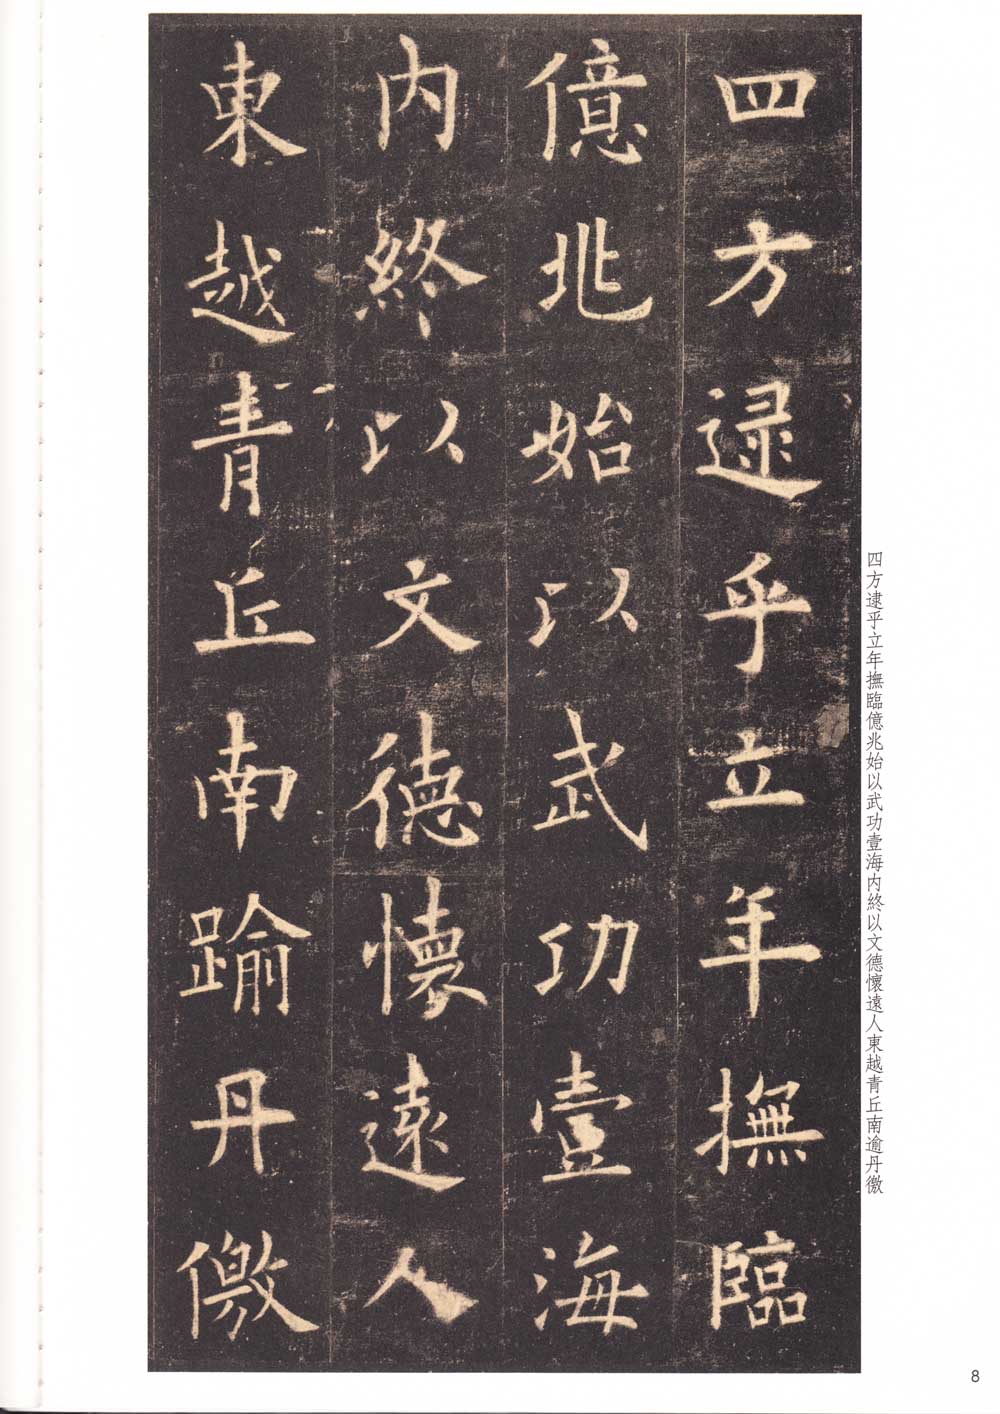 四方逮乎立年撫臨
億兆始以武功壹海
內終以文德懷遠人
東越青丘南踰丹儌
四方逮乎立年撫臨億兆始以武功壹海内終以文德懷遠人東越青丘南逾丹徼
8